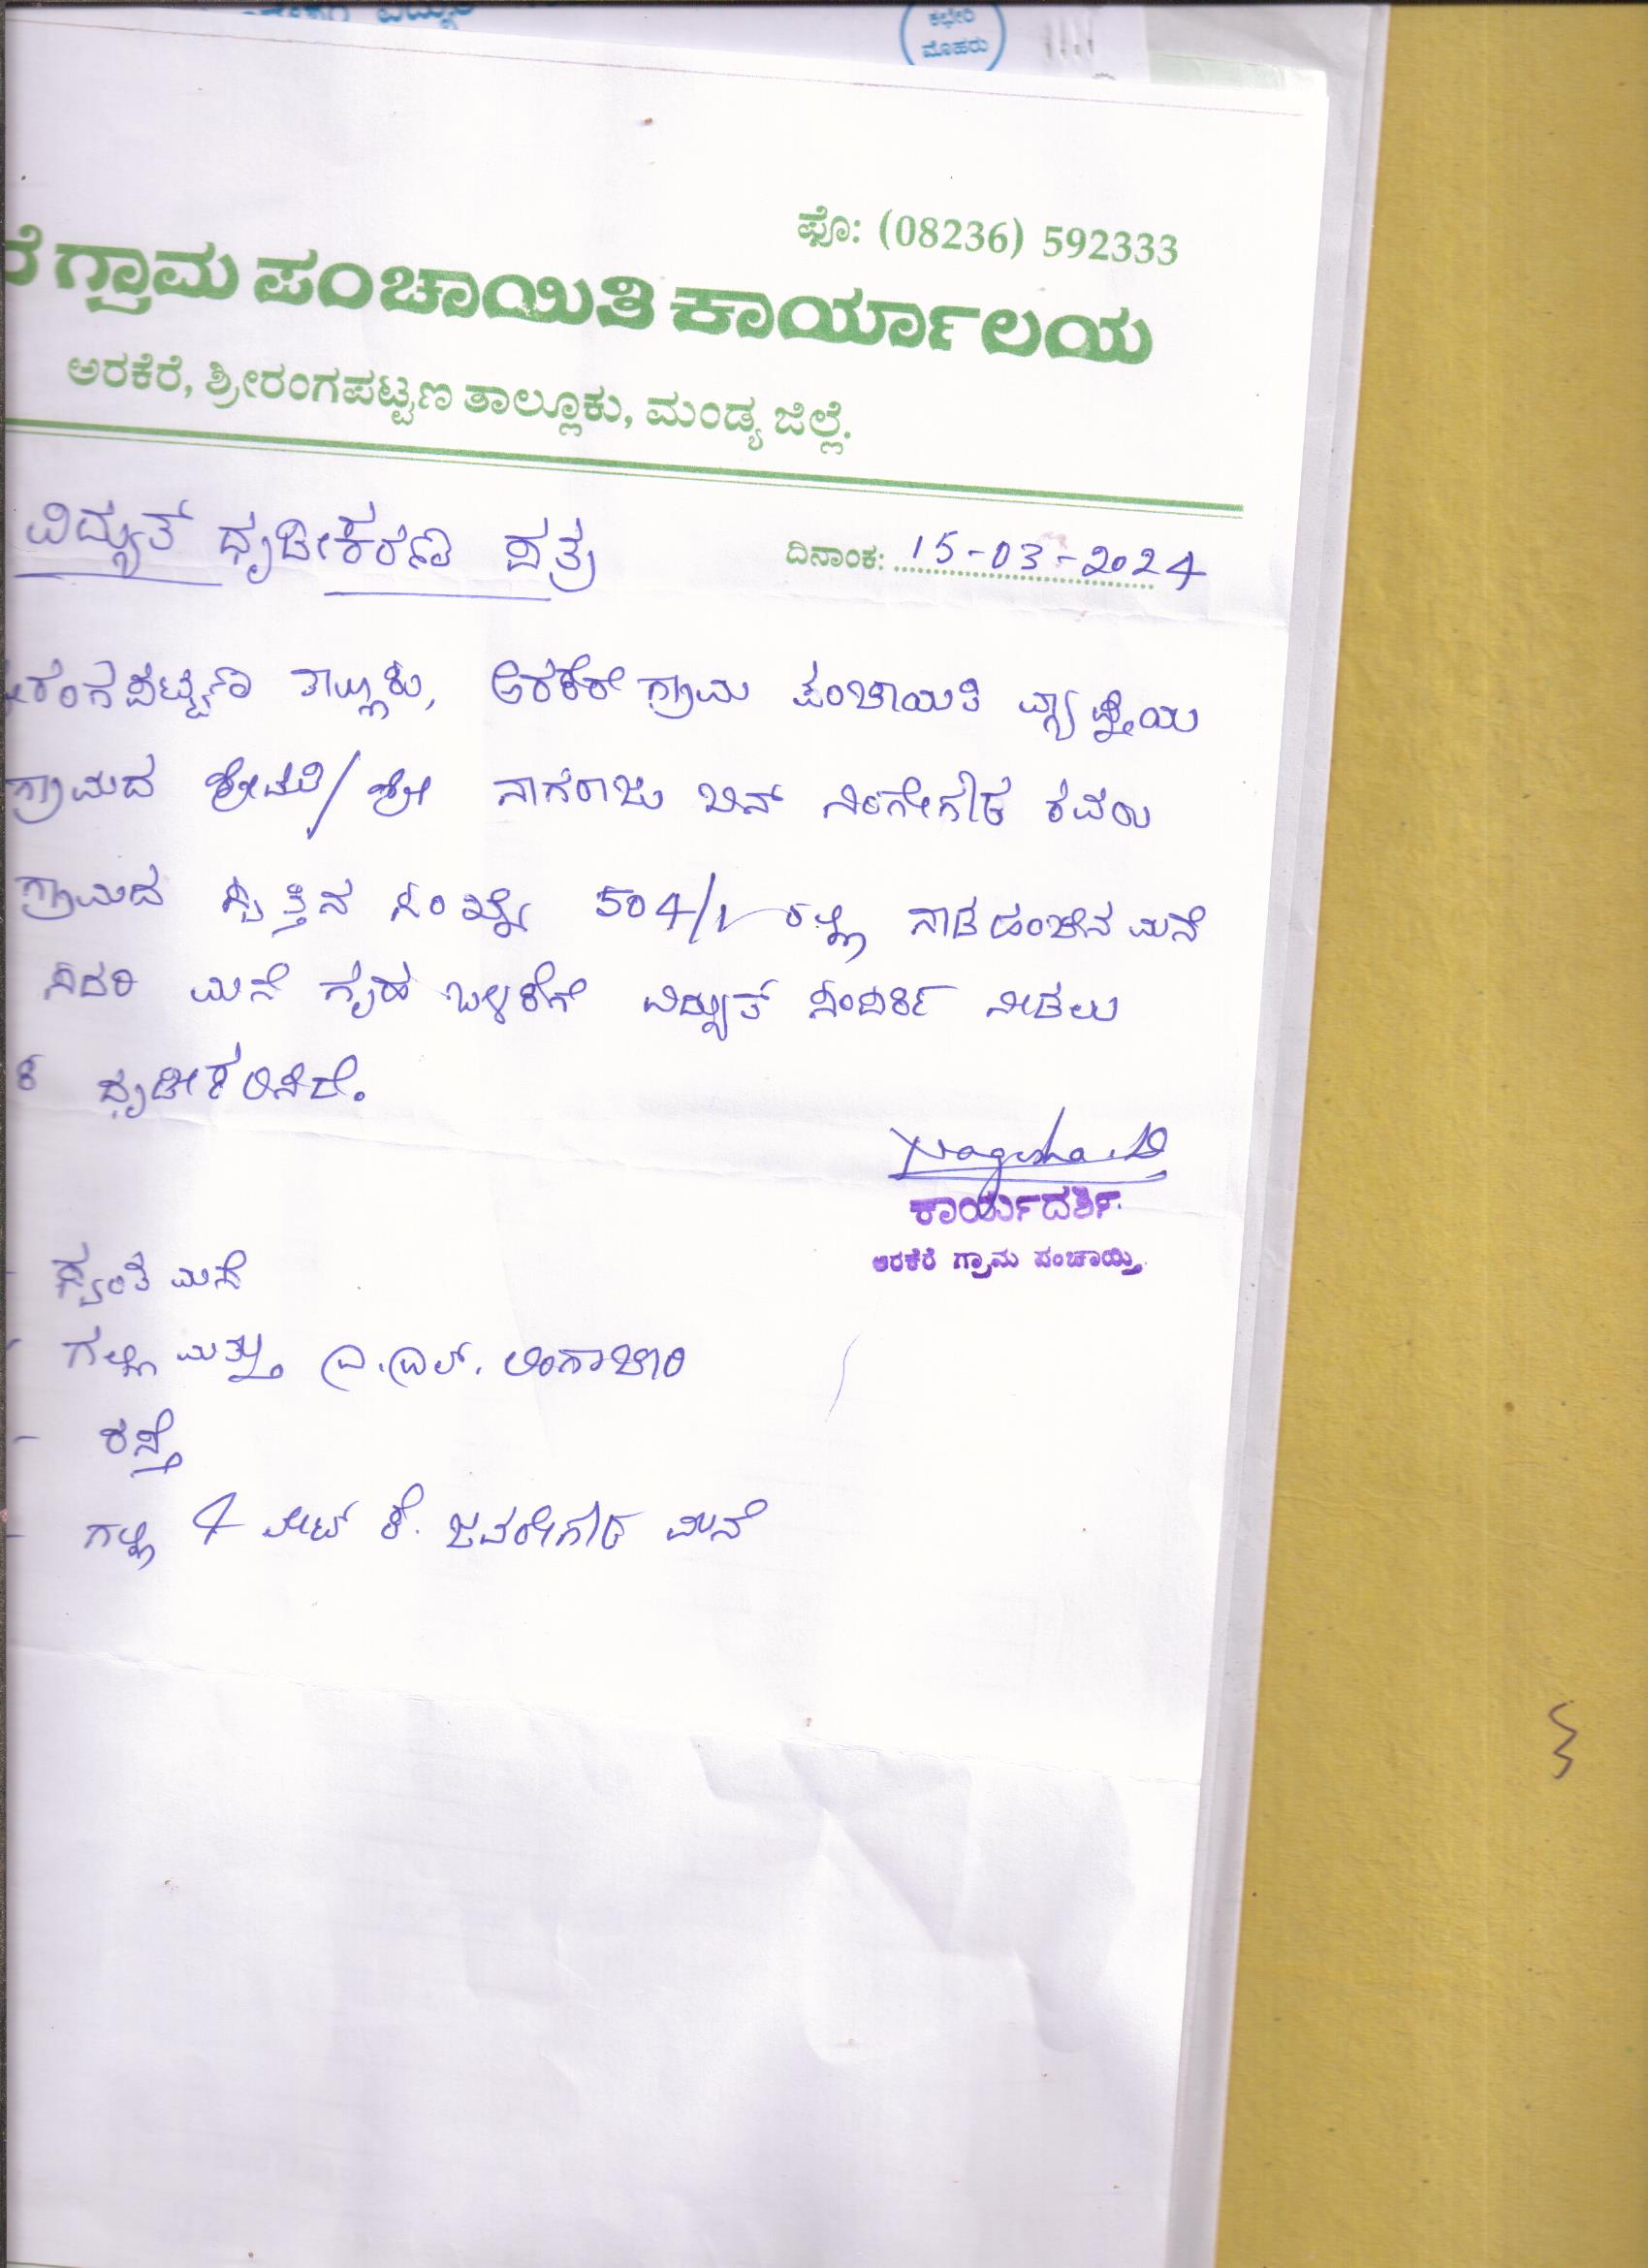 ಕಛೇರಿ
ಮೊಹರು
ಫೊ: (08236) 592333
ರೆ ಗ್ರಾಮ ಪಂಚಾಯಿತಿ ಕಾರ್ಯಾಲಯ
ಅರಕೆರೆ, ಶ್ರೀರಂಗಪಟ್ಟಣ ತಾಲ್ಲೂಕು, ಮಂಡ್ಯ ಜಿಲ್ಲೆ.
ವಿದ್ಯುತ್ ಧೃಡೀಕರಣ ಪತ್ರ ದಿನಾಂಕ: 15-03-2024
ರಂಗಪಟ್ಟಣ ತಾಲ್ಲೂಕು, ಅರಕೆರೆ ಗ್ರಾಮ ಪಂಚಾಯಿತಿ ವ್ಯಾಪ್ತಿಯ
ಗ್ರಾಮದ ಶ್ರೀಮತಿ/ಶ್ರೀ ನಾಗರಾಜು ಬಿನ್ ನಿಂಗೇಗೌಡ ರವರು
ಗ್ರಾಮದ ಸ್ವತ್ತಿನ ಸಂಖ್ಯೆ 504/1 ರಲ್ಲಿ ನಾಡ ಹಂಚಿನ ಮನೆ
ಸದರಿ ಮನೆ ಗೃಹ ಬಳಕೆಗೆ ವಿದ್ಯುತ್ ಸಂಪರ್ಕ ನೀಡಲು
ಧೃಡೀಕರಿಸಿದೆ.
Nagesha. D
ಕಾರ್ಯದರ್ಶಿ
ಅರಕೆರೆ ಗ್ರಾಮ ಪಂಚಾಯ್ತಿ
- ಸ್ವಂತ ಮನೆ
- ಗಲ್ಲಿ ಮತ್ತು ಎ.ಎಲ್. ಲಿಂಗಾಚಾರಿ
- ರಸ್ತೆ
- ಗಲ್ಲಿ 4 ಕೆ. ಜವರೇಗೌಡ ಮನೆ